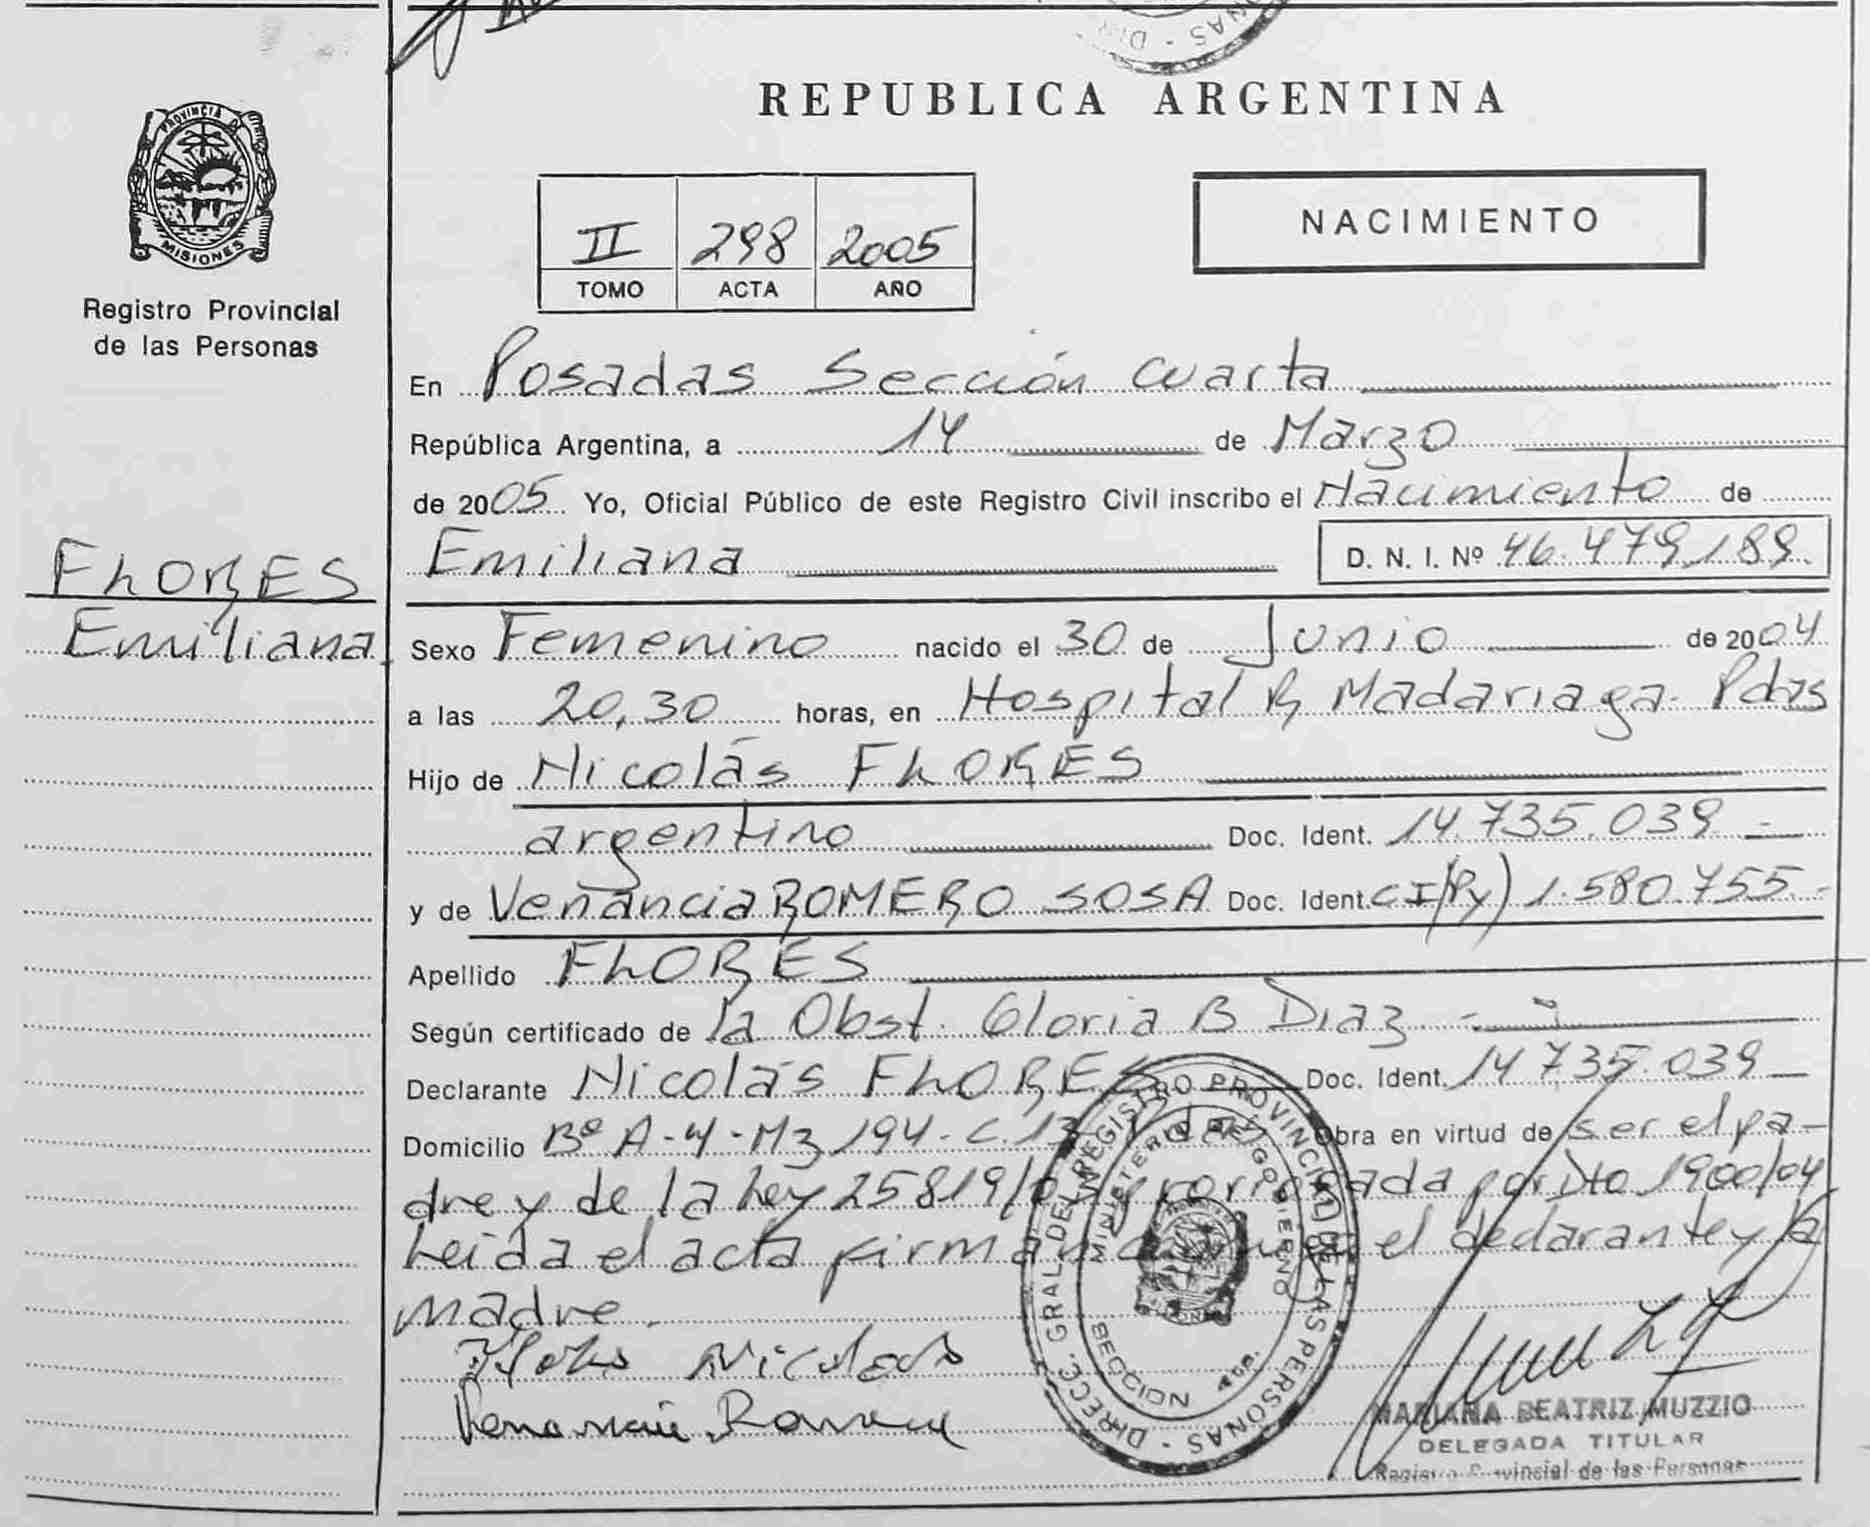 PROVINCIA DE
MISIONES
Registro Provincial
de las Personas
FLORES
Emiliana
REPUBLICA ARGENTINA
II 298 2005
TOMO ACTA AÑO
NACIMIENTO
En Posadas Sección Cuarta
República Argentina, a 14 de Marzo
de 2005 Yo, Oficial Público de este Registro Civil inscribo el Nacimiento de
Emiliana D. N. I. Nº 46.479.189.
Sexo Femenino nacido el 30 de Junio de 2004
a las 20,30 horas, en Hospital R Madariaga - Pdas
Hijo de Nicolás FLORES
argentino Doc. Ident. 14.735.039 -
y de Venancia ROMERO SOSA Doc. Ident. CI(Py) 1.580.755.-
Apellido FLORES
Según certificado de la Obst. Gloria B Diaz -
Declarante Nicolás FLORES Doc. Ident. 14.735.039
Domicilio Bº A-4-Mz 194-C.13 Obra en virtud de ser el pa-
dre y de la Ley 25819/ prorrogada por Dto 1900/04
Leida el acta firman el declarante y la
madre.
Flores Nicolas
Romero
DIRECC. GRAL. DEL REGISTRO PROVINCIAL DE LAS PERSONAS
MINISTERIO DE GOBIERNO
SECCION 4ta.
MARIANA BEATRIZ MUZZIO
DELEGADA TITULAR
Registro Provincial de las Personas